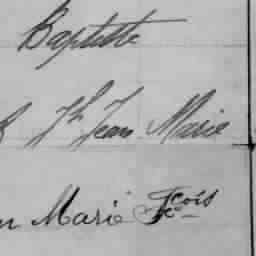 Baptiste
Jh Jean Marie
n Marie Fcois